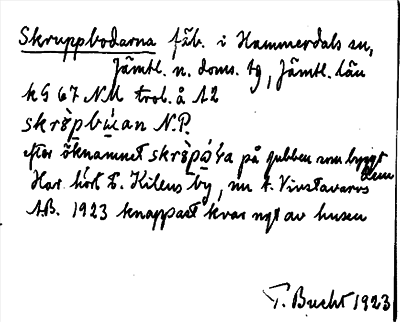 Skruppbodarna fäb. i Hammerdals sn,
Jämtl. n. doms. tg, Jämtl. län
kG 67 NM trol. å 12
skrə̀pbu̇́an N.P.
efter öknamnet skrə̀pɷ́ɤa på gubben som byggt dem
Har hört t. Kilens by, nu t. Vinstavarvs
AB. 1923 knappast kvar ngt av husen
T. Bucht 1923